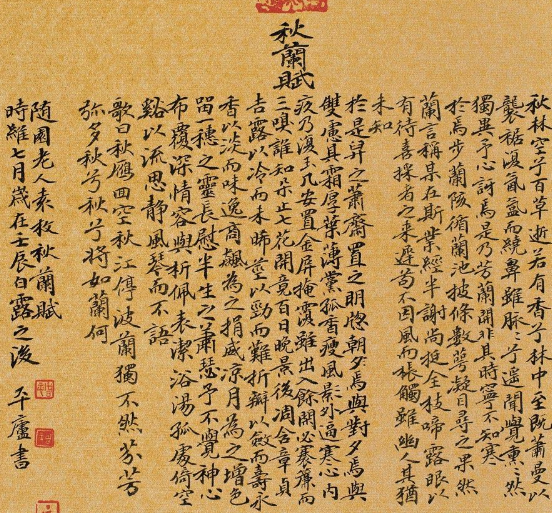 秋蘭賦
秋林空兮百草逝若有香兮林中至既蕭曼以
襲裾復氤氳而繞鼻雖脈脈兮遥聞覺熏熏然
獨異予心訝焉是乃芳蘭開非其時寧不知寒
於焉步蘭陔循蘭池披條數萼凝目尋之果然
蘭言稱某在斯業經半謝尚挺全枝啼露眼以
有待喜採者之來遲苟不因風而棖觸雖幽人其猶
未知
於是舁之蕭齋置之明窗朝夕焉與對夕焉與
雙慮其霜厚葉薄黨孤香瘦風影外逼寒心內
疚乃復玉几安置金屏掩覆雖出入餘閒必褰簾而
三嗅誰知朵止七花開竟百日晚景後凋含章貞
吉露以冷而未晞莖以勁而難折瓣以斂而壽永
香以淡而味逸商飆為之損威涼月為之增色
留一穗之靈長慰半生之蕭瑟予不覺神心
布覆深情容與析佩表潔浴湯孤處倚空
谿以流思静風琴而不語
歌曰秋雁回空秋江停波蘭獨不然芬芳
弥多秋兮秋兮將如蘭何
隨園老人袁枚秋蘭賦
時維七月歲在壬辰白露之後 平廬書